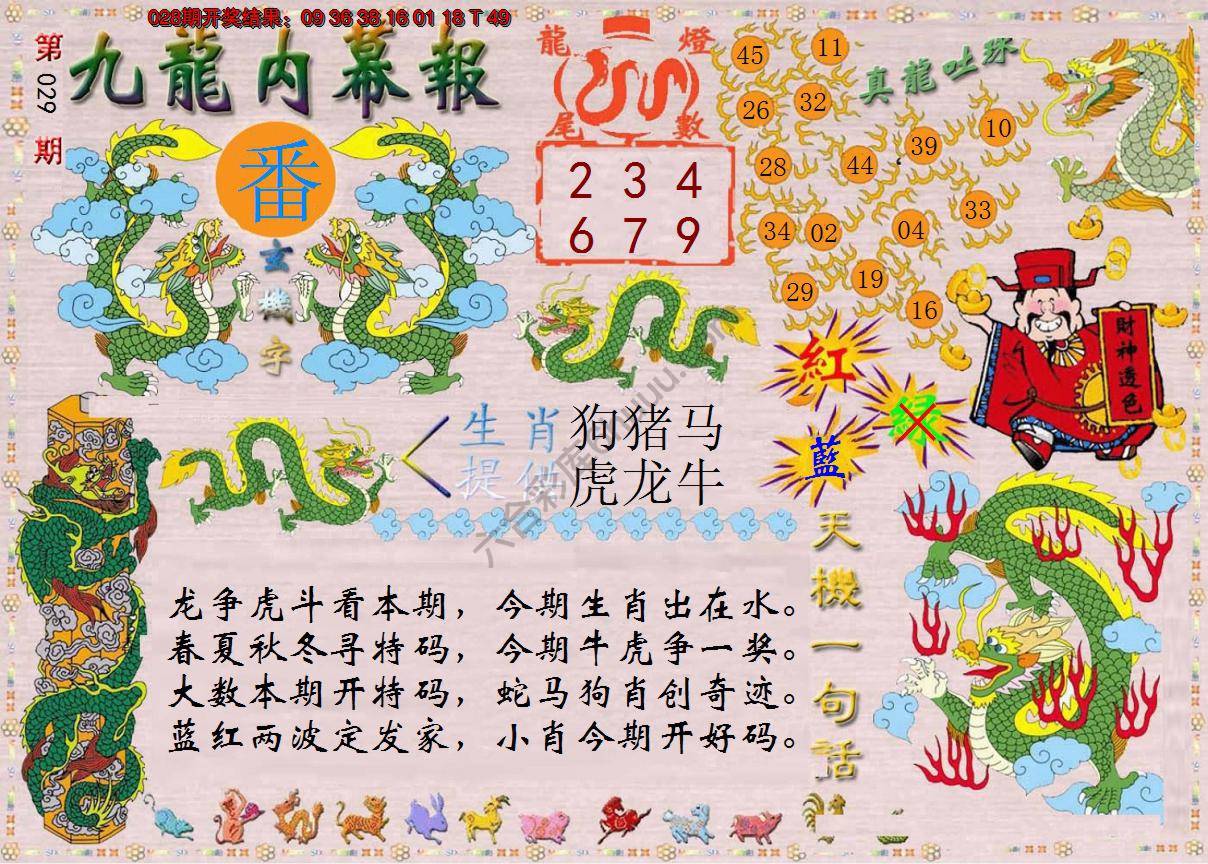 028期开奖结果：09 36 38 16 01 18 T 49
第029期
九龍内幕報
番
玄機字
龍燈
尾數
2 3 4
6 7 9
真龍吐珠
45 11
26 32
28 44 39 10
34 02 04 33
29 19 16
財神透色
紅
绿
藍
生肖 狗猪马
提供 虎龙牛
天機一句話
龙争虎斗看本期，今期生肖出在水。
春夏秋冬寻特码，今期牛虎争一奖。
大数本期开特码，蛇马狗肖创奇迹。
蓝红两波定发家，小肖今期开好码。